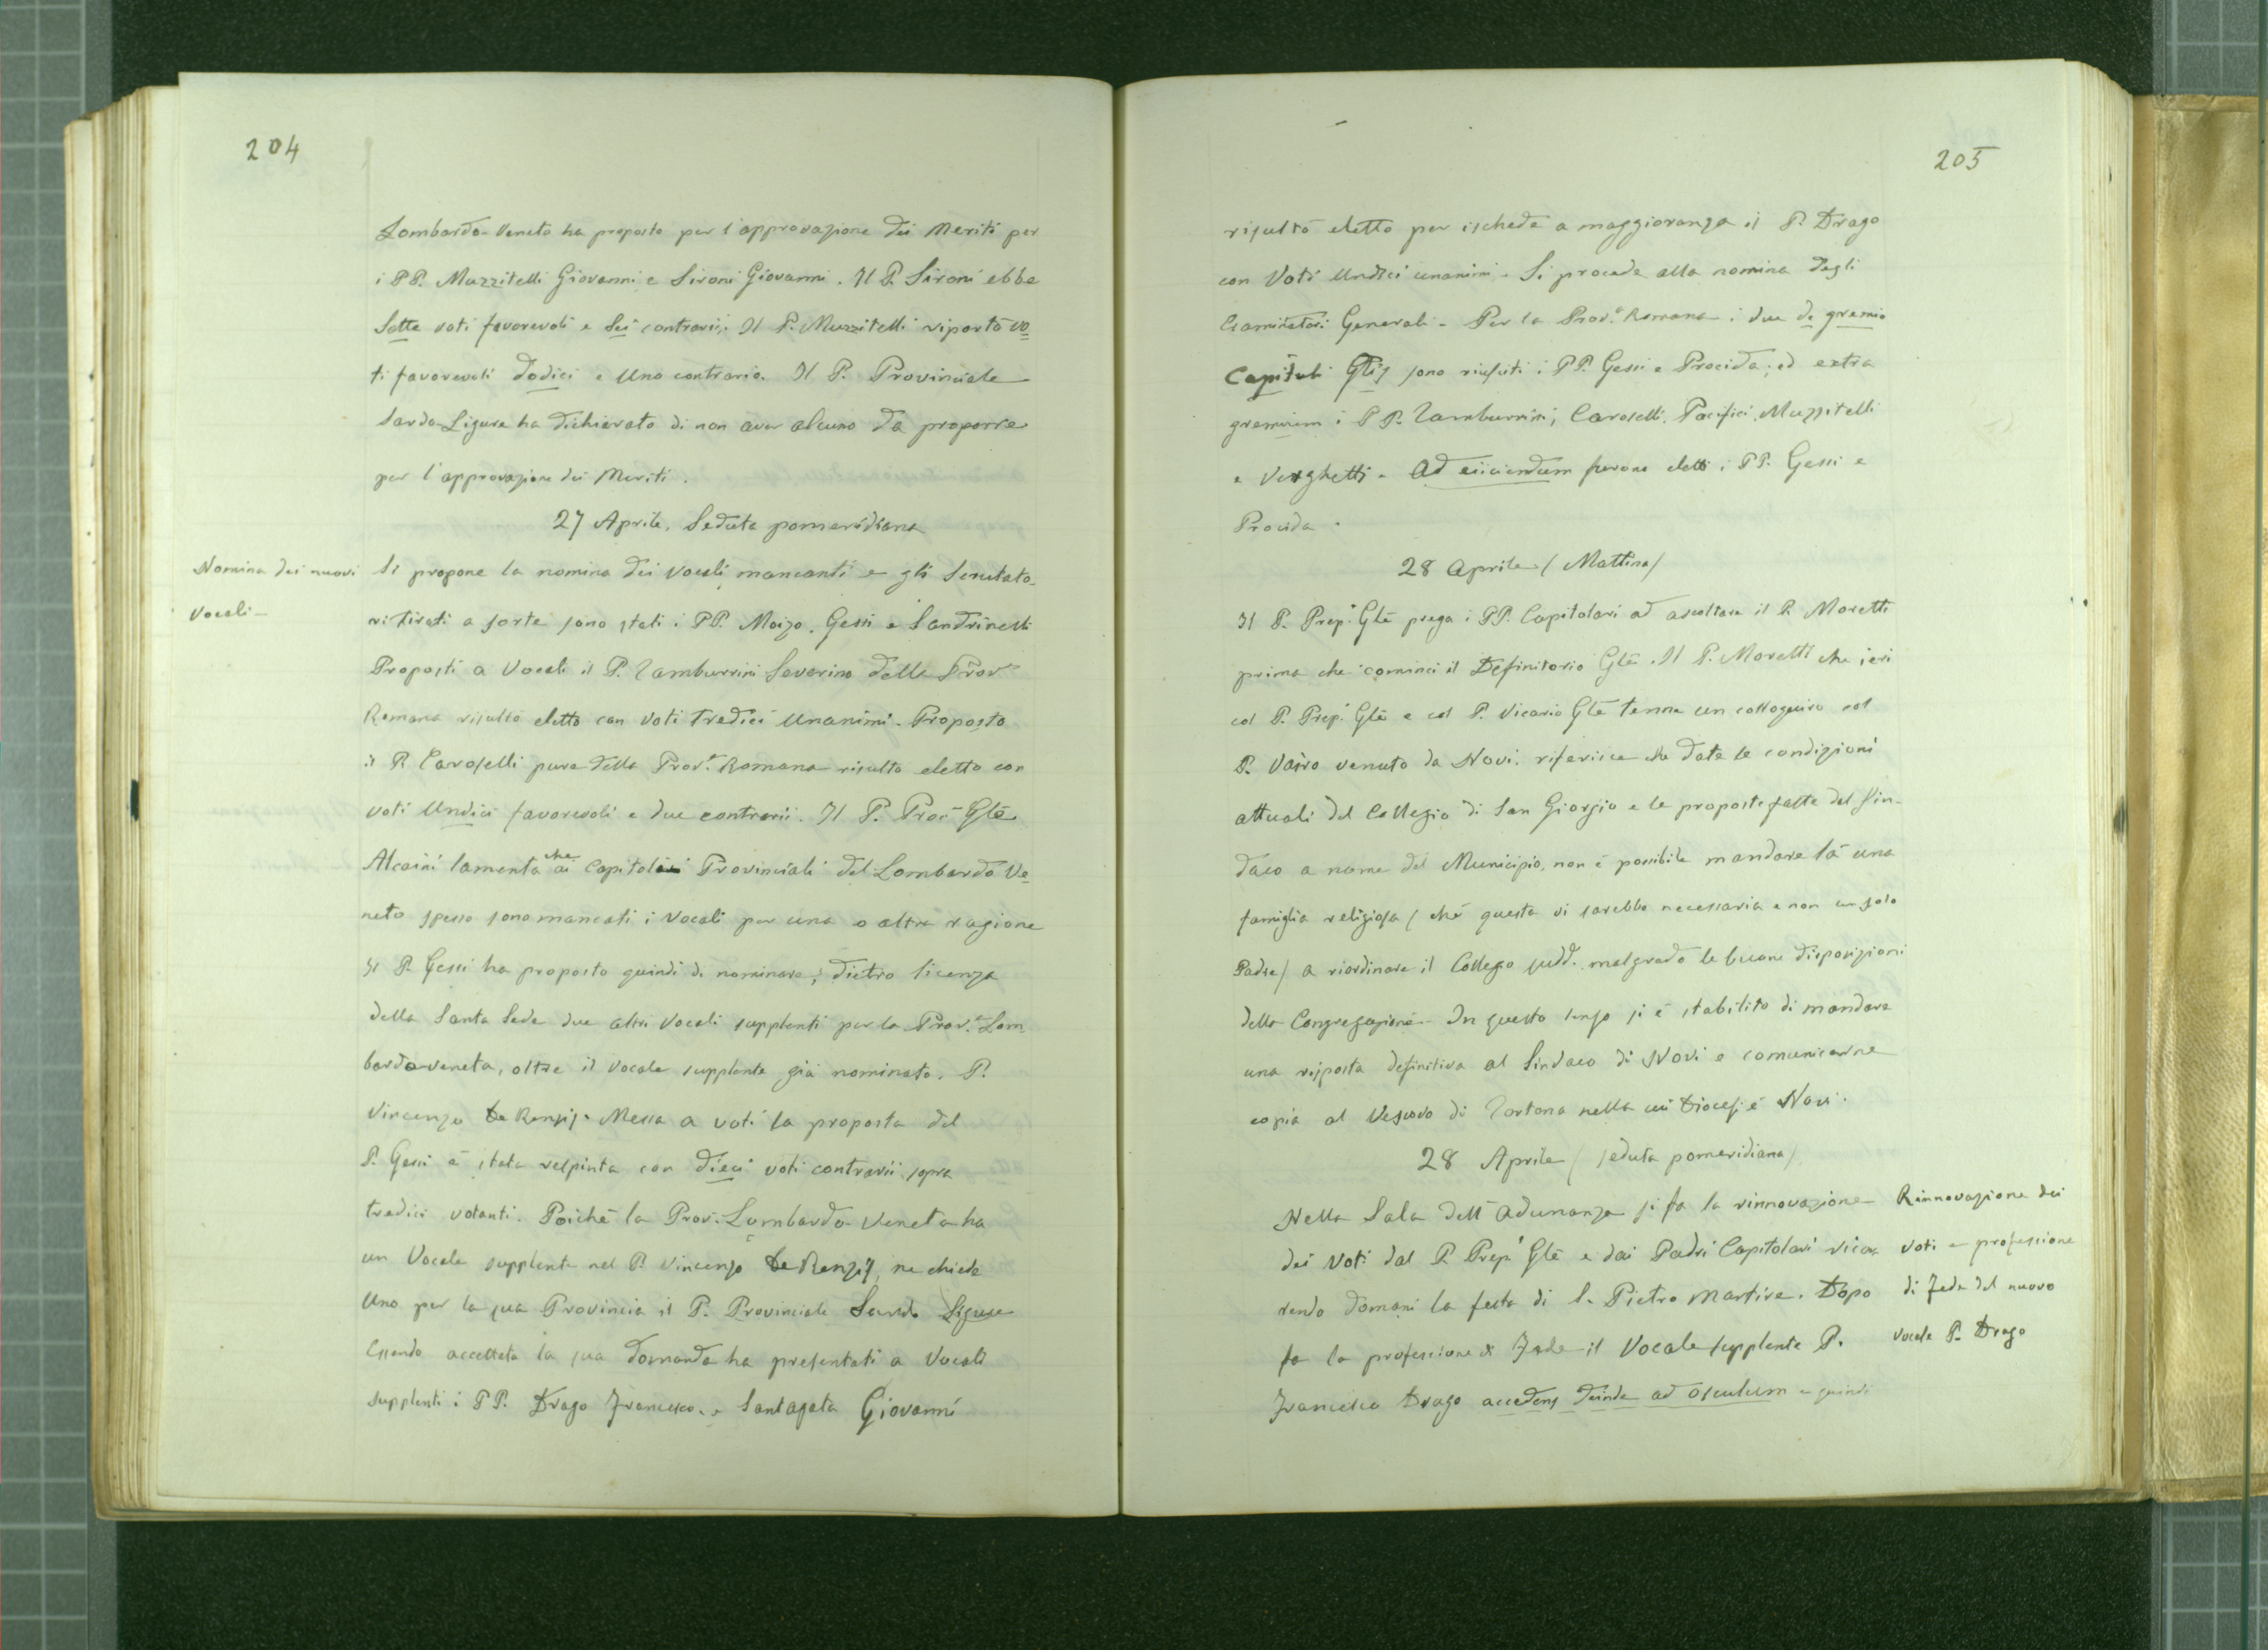 204
Lombardo-Veneto ha proposto per l'approvazione dei Meriti per
i PP. Muzzitelli Giovanni e Sironi Giovanni. Il P. Sironi ebbe
Sette voti favorevoli e Sei contrarii; Il P. Muzzitelli riportò vo=
ti favorevoli dodici e Uno contrario. Il P. Provinciale
Sardo-Ligure ha dichiarato di non aver alcuno da proporre
per l'approvazione dei Meriti.
27 Aprile, Seduta pomeridiana
Nomina dei nuovi
Vocali-
Si propone la nomina dei Vocali mancanti e gli Scrutato-
ri tirati a sorte sono stati i PP. Moizo, Gessi e Sandrinelli
Proposti a Vocali il P. Tamburrini Severino della Prov.a
Romana risultò eletto con voti tredici Unanimi - Proposto
il P. Caroselli pure della Prov.a Romana risulta eletto con
voti Undici favorevoli e due contrarii. Il P. Proc. Gle
Alcaini lamenta che ai Capitoli Provinciali del Lombardo Ve=
neto spesso sono mancati i Vocali per una o altra ragione
Il P. Gessi ha proposto quindi di nominare, dietro licenza
della Santa Sede due altri Vocali supplenti per la Prov.a Lom
bardo-veneta, oltre il Vocale supplente già nominato. P.
Vincenzo De Renzis. Messa a voti la proposta del
P. Gessi è stata respinta con dieci voti contrarii sopra
tredici votanti. Poichè la Prov. Lombardo-Veneta ha
un Vocale supplente nel P. Vincenzo De Renzis, ne chiede
Uno per la sua Provincia il P. Provinciale Sardo Ligure
Essendo accettata la sua domanda ha presentati a Vocali
supplenti i PP. Drago Francesco e Santagata Giovanni
205
risultò eletto per ischede a maggioranza il P. Drago
con Voti Undici unanimi. Si procede alla nomina degli
Esaminatori Generali - Per la Prov.a Romana i due de gremio
Capituli Glis sono riusciti i PP. Gessi e Procida; ed extra
gremium i PP. Tamburrini, Caroselli, Pacifici, Muzzitelli
e Verghetti - Ad eiiciendum furono eletti i PP. Gessi e
Procida.
28 Aprile (Mattina)
Il P. Prep. Gle prega i PP. Capitolari ad ascoltare il P. Moretti
prima che cominci il Definitorio Gle. Il P. Moretti che ieri
col P. Prep. Gle e col P. Vicario Gle tenne un colloquio col
P. Vairo venuto da Novi, riferisce che date le condizioni
attuali del Collegio di San Giorgio e le proposte fatte dal Sin-
daco a nome del Municipio, non è possibile mandare là una
famiglia religiosa (chè questa vi sarebbe necessaria e non un solo
Padre) a riordinare il Collegio sudd. malgrado le buone disposizioni
della Congregazione - In questo senso si è stabilito di mandare
una risposta definitiva al Sindaco di Novi e comunicarne
copia al Vescovo di Tortona nella cui Diocesi è Novi.
28 Aprile (seduta pomeridiana)
Nella Sala dell'adunanza si fa la rinnovazione
dei Voti dal P. Prep. Gle e dai Padri Capitolari ricor
rendo domani la festa di S. Pietro Martire. Dopo
fa la professione di Fede il Vocale supplente P.
Francesco Drago accedens deinde ad osculum e quindi
Rinnovazione dei
voti e professione
di Fede del nuovo
Vocale P. Drago